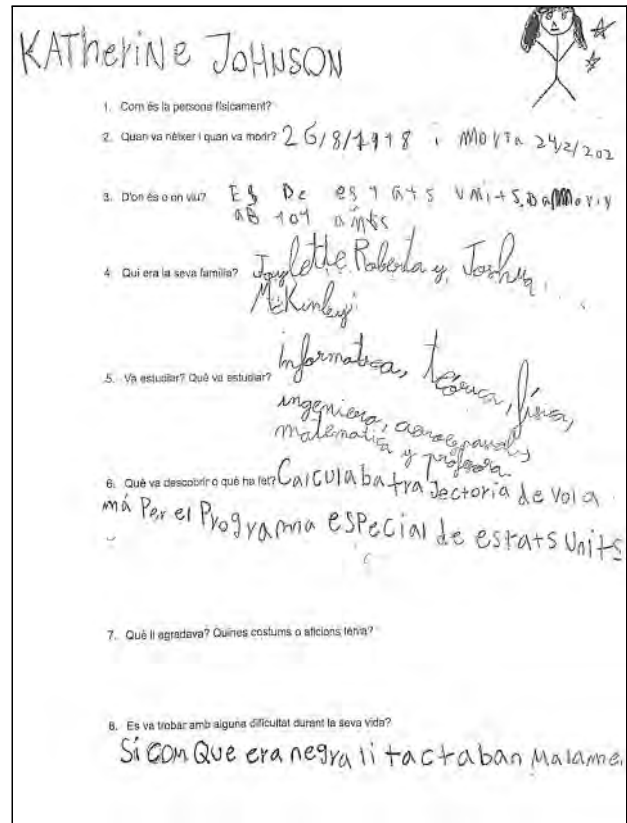 KATherine JOHNSON
1. Com és la persona físicament?
2. Quan va néixer i quan va morir? 26/8/1918 i morta 24/2/202
3. D'on és o on viu? Es De estats units, Da
AB 101
4. Qui era la seva família? Joylette Roberta y Joshua
McKinley
5. Va estudiar? Què va estudiar? informatica, teórica, física,
ingeniera,
matematica y profesora.
6. Què va descobrir o què ha fet? Calculaba trajectoria de vol a
má Per el Programa esPecial de estats Units
7. Què li agradava? Quines costums o aficions tenia?
8. Es va trobar amb alguna dificultat durant la seva vida?
Sí com Que era negra li tactaban malame.